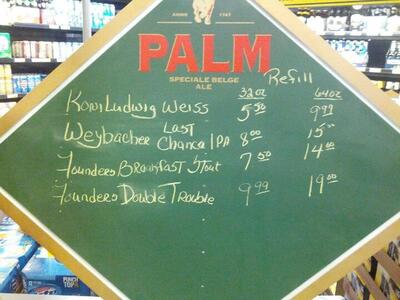 ANNO 1747
PALM
SPECIALE BELGE
ALE
Refill
32oz 64oz
Konig Ludwig Weiss 5.50 9.99
Weybacher Last Chance IPA 8.00 15.00
Founders Breakfast Stout 7.50 14.00
Founders Double Trouble 9.99 19.00
PUNCH
TOP